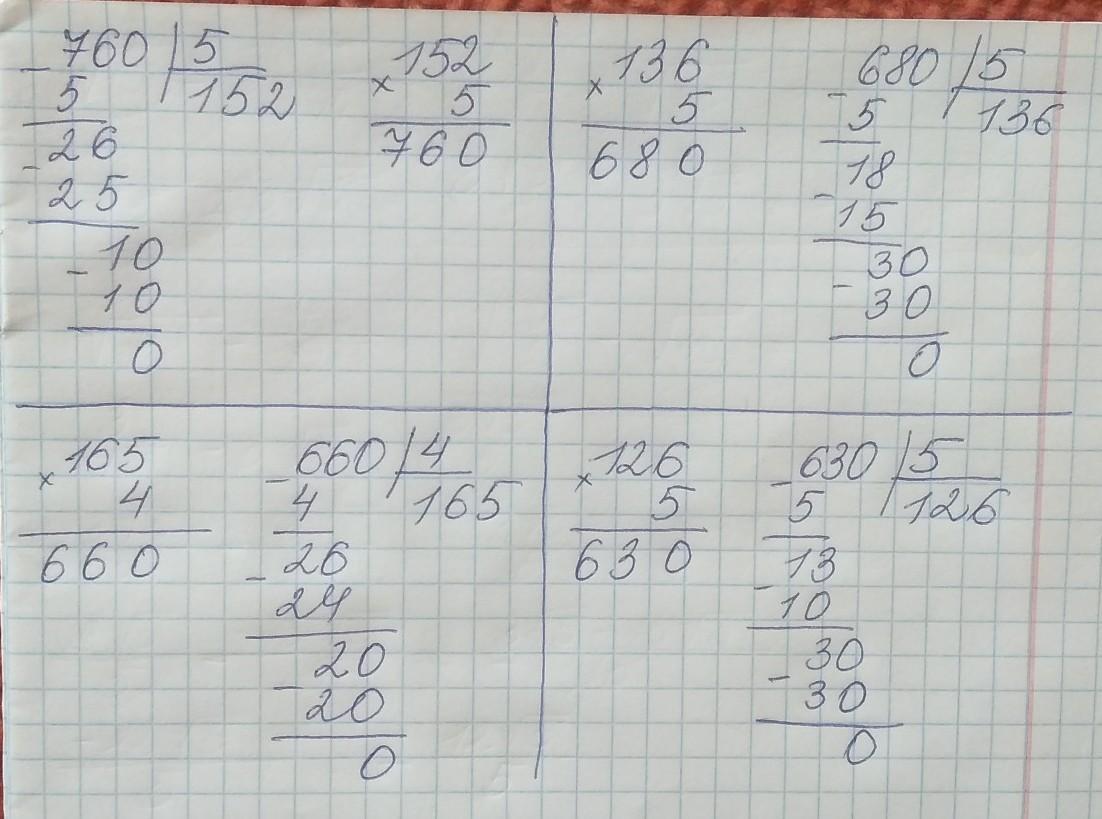 - 760 | 5
5 152
- 26
25
- 10
10
0
× 152
5
760
× 136
5
680
- 680 | 5
5 136
- 18
15
- 30
30
0
× 165
4
660
- 660 | 4
4 165
- 26
24
- 20
20
0
× 126
5
630
- 630 | 5
5 126
- 13
10
- 30
30
0